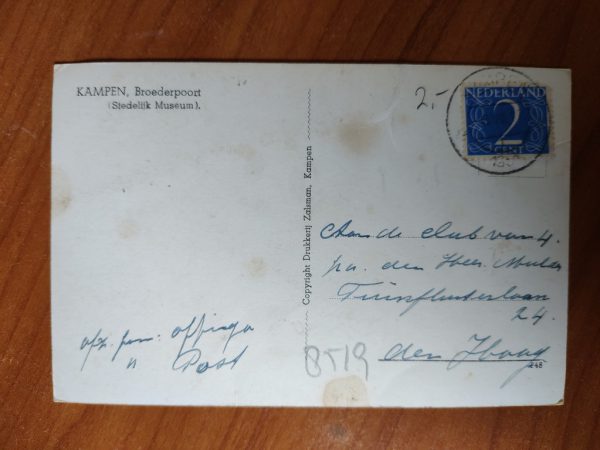 KAMPEN, Broederpoort
(Stedelijk Museum).
2,-
NEDERLAND
2
CENT
Copyright Drukkerij Zalsman, Kampen
Aan de club van 4.
p/a. den Heer Mulder
24.
den Haag
afz. fam: Offinga
Post
BT19